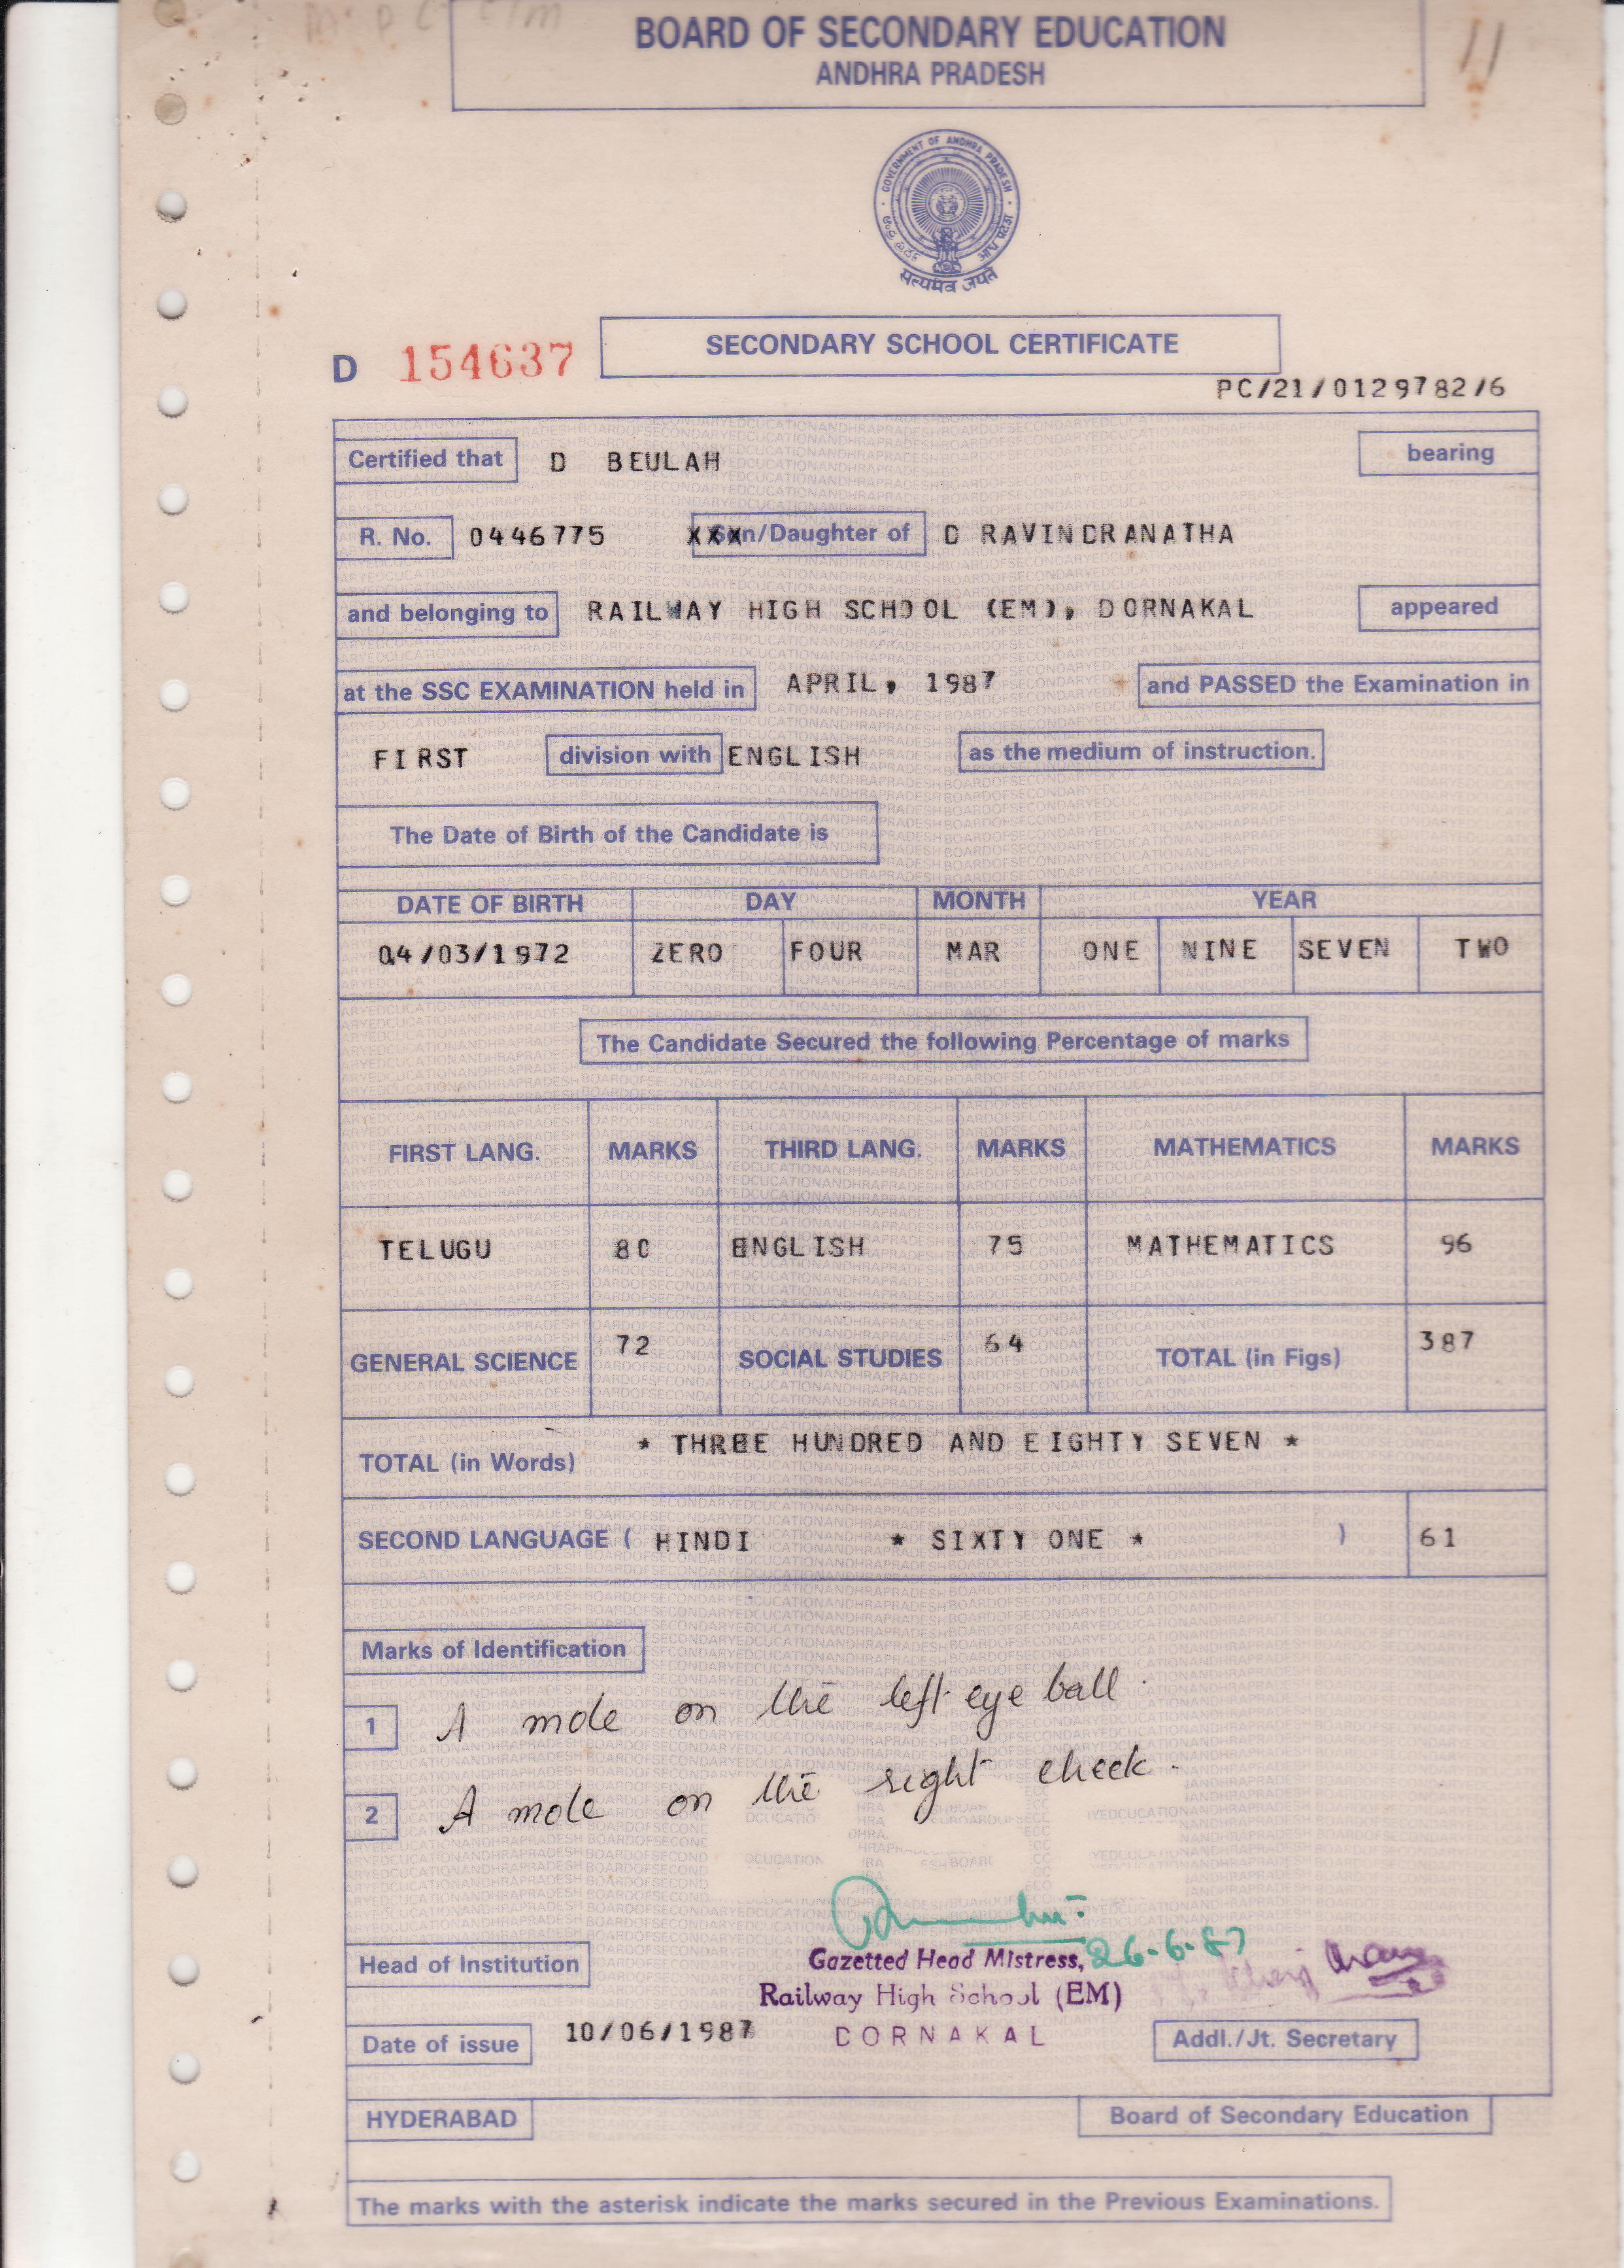 BOARD OF SECONDARY EDUCATION
ANDHRA PRADESH
11
GOVERNMENT OF ANDHRA PRADESH
सत्यमेव जयते
SECONDARY SCHOOL CERTIFICATE
D 154637
PC/21/0129782/6
Certified that D BEULAH bearing
R. No. 0446775 XXX Son/Daughter of D RAVINDRANATHA
and belonging to RAILWAY HIGH SCHOOL (EM), DORNAKAL appeared
at the SSC EXAMINATION held in APRIL, 1987 and PASSED the Examination in
FIRST division with ENGLISH as the medium of instruction.
The Date of Birth of the Candidate is
DATE OF BIRTH DAY MONTH YEAR
04/03/1972 ZERO FOUR MAR ONE NINE SEVEN TWO
The Candidate Secured the following Percentage of marks
FIRST LANG. MARKS THIRD LANG. MARKS MATHEMATICS MARKS
TELUGU 80 ENGLISH 75 MATHEMATICS 96
GENERAL SCIENCE 72 SOCIAL STUDIES 64 TOTAL (in Figs) 387
TOTAL (in Words) * THREE HUNDRED AND EIGHTY SEVEN *
SECOND LANGUAGE ( HINDI * SIXTY ONE * ) 61
Marks of Identification
1 A mole on the left eye ball.
2 A mole on the right cheek.
26-6-87
Head of Institution Gazetted Head Mistress,
Railway High School (EM)
Date of issue 10/06/1987 DORNAKAL Addl./Jt. Secretary
HYDERABAD Board of Secondary Education
The marks with the asterisk indicate the marks secured in the Previous Examinations.